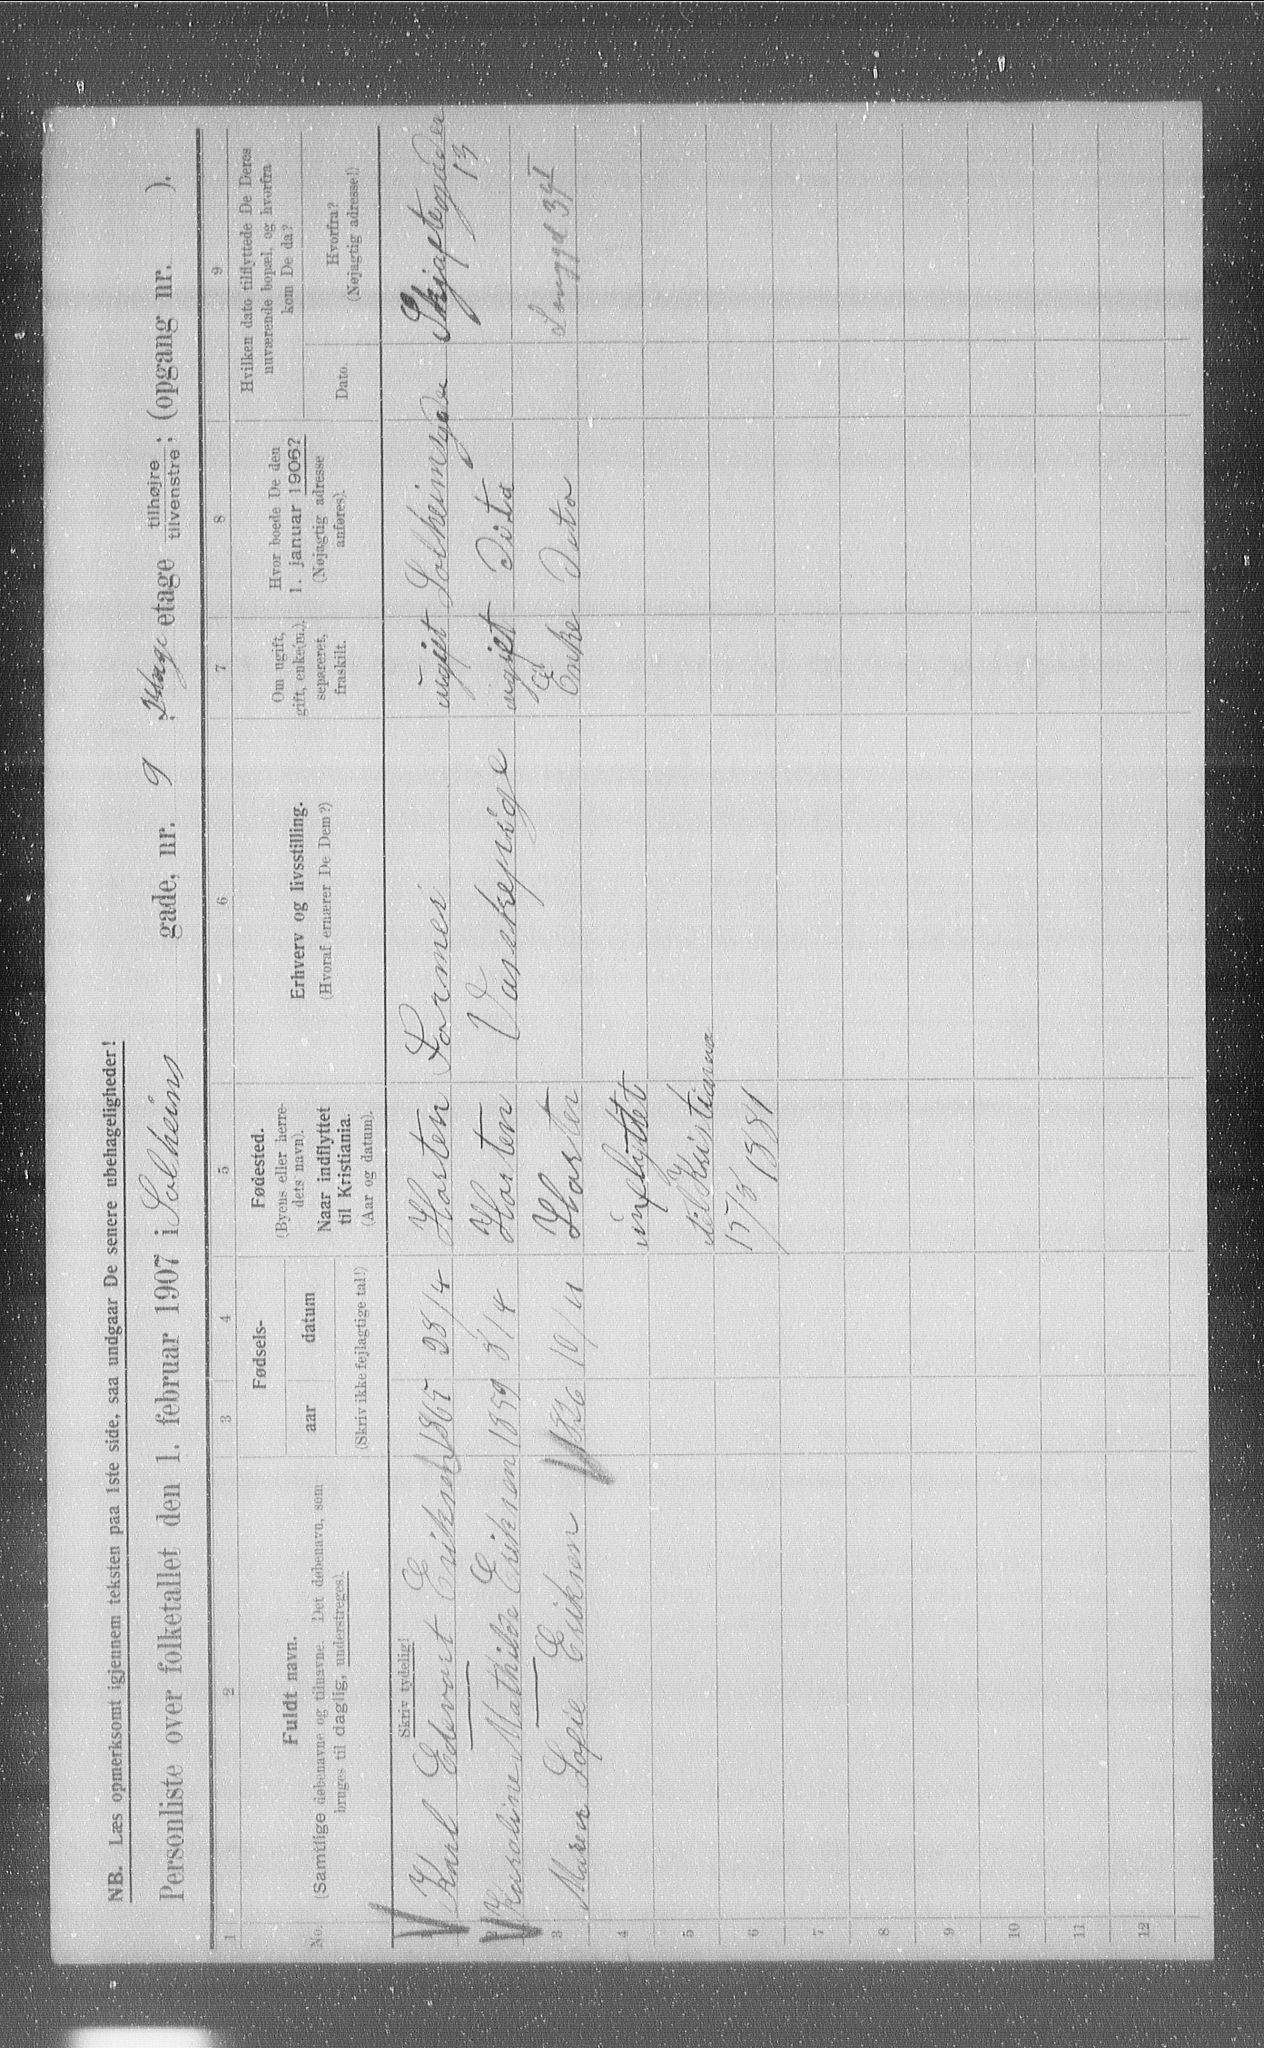 NB. Læs opmerksomt igjennem teksten paa 1ste side, saa undgaar De senere ubehageligheder!
Personliste over folketallet den 1. februar 1907 i Solheims gade, nr. 9 , etage tilhøjre tilvenstre; (opgang nr. ).
1 2 3 4 5 6 7 8 9
No.
Fuldt navn.
(Samtlige døbenavne og tilnavne. Det døbenavn, som
bruges til daglig, understreges).
Skriv tydelig!
Fødsels-
aar datum
(Skriv ikke fejlagtige tal!)
Fødested.
(Byens eller herre-
dets navn).
Naar indflyttet
til Kristiania.
(Aar og datum).
Erhverv og livsstilling.
(Hvoraf ernærer De Dem?)
Om ugift,
gift, enke(m.),
separeret,
fraskilt.
Hvor boede De den
1. januar 1906?
(Nøjagtig adresse
anføres).
Hvilken dato tilflyttede De Deres
nuværende bopæl, og hvorfra
kom De da?
Dato.
Hvorfra?
(Nøjagtig adresse!)
1 Karl Edevart Eriksen 1865 28/4 Horten Former ugift Solheimsgade Skjaftegaden 13
2 Karoline Mathilde Eriksen 1859 3/4 Horten Vaskepige ugift Dito
3 Maren Sofie Eriksen 1826 10/11 Horten Enke Dito
4 inflyttet
5 til Kristiania
6 15/5 1881
7
8
9
10
11
12